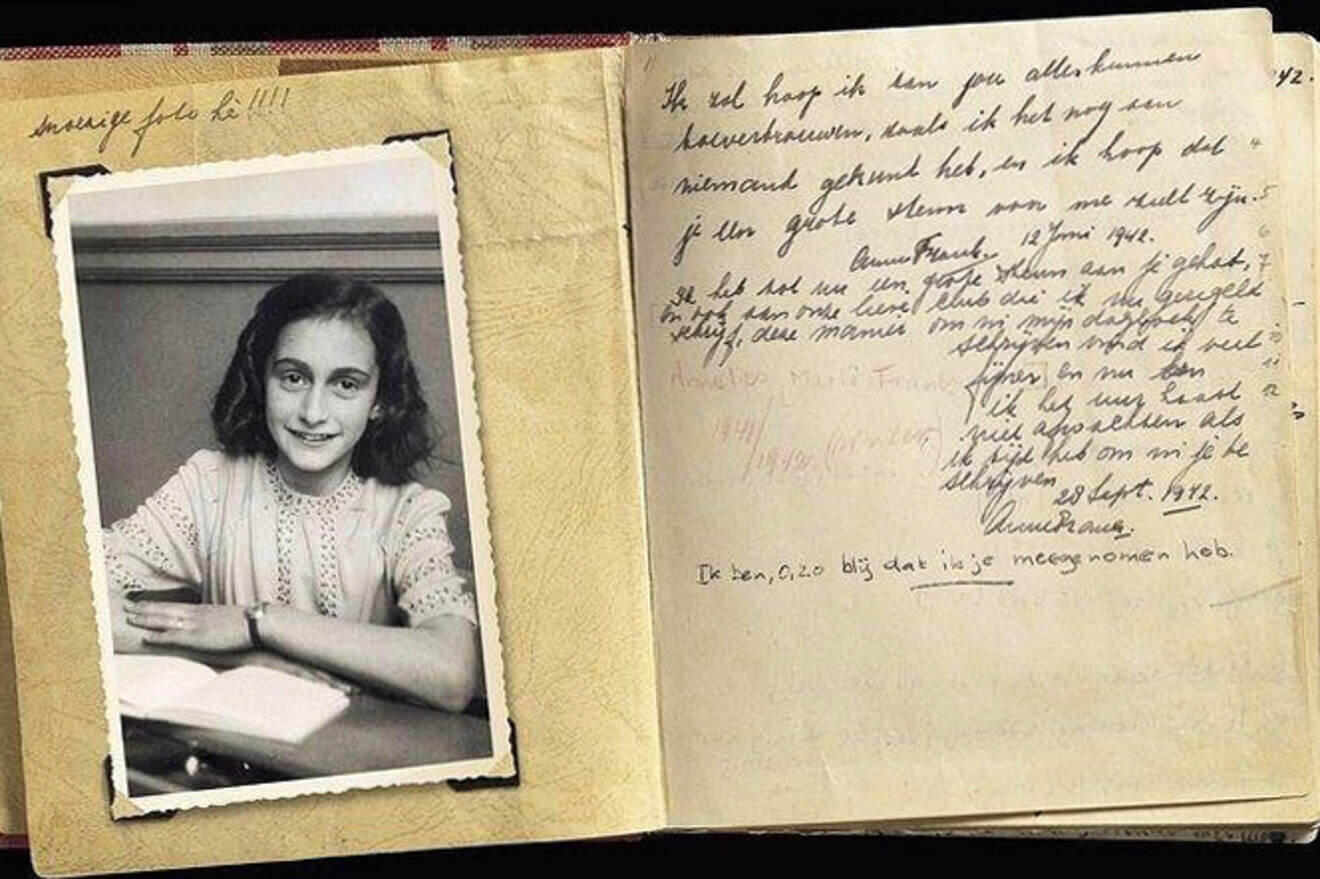 snoezige foto hè!!!!
Ik zal hoop ik aan jou alles kunnen
toevertrouwen, zoals ik het nog aan
niemand gekund heb, en ik hoop dat
je een grote steun voor me zult zijn.
Anne Frank. 12 Juni 1942.
Ik heb tot nu een grote steun aan je gehad,
en ook aan onze lieve club die ik nu geregeld
schrijf, deze manier om in mijn dagboek te
schrijven vind ik veel
fijner en nu
ik het uur haast
niet afwachten als
ik tijd heb om in je te
schrijven
28 Sept. 1942.
Anne Frank.
Annelies Marie Frank
1941/
1942. (winter)
Ik ben, o, zo blij dat ik je meegenomen heb.
42.
4
5
6
7
10
11
12